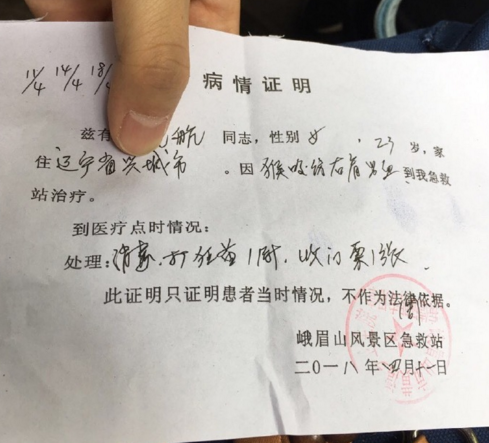 11/4 14/4 18/
病情证明
兹有 航 同志，性别 女 ，23 岁，家
住 辽宁省兴城市 。因 猴咬伤右肩 到我急救
站治疗。
到医疗点时情况：
处理：消毒．打狂苗1针．收门票1张．
此证明只证明患者当时情况，不作为法律依据。
峨眉山风景区急救站
二〇一八年四月十一日